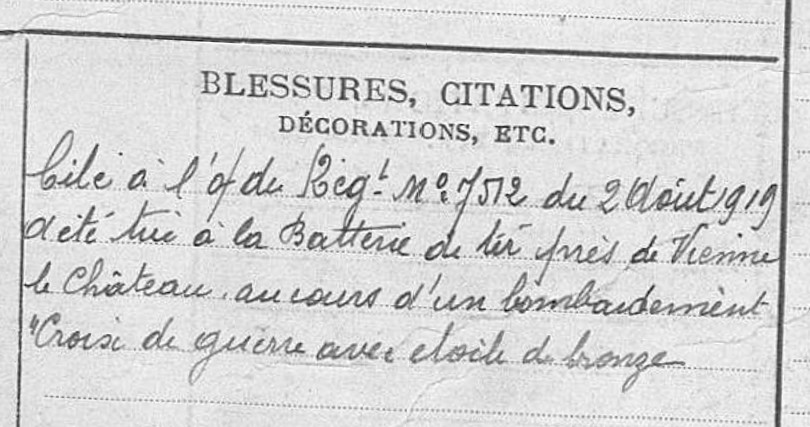 BLESSURES, CITATIONS,
DÉCORATIONS, ETC.
Cité à l'o/ du Régt No 7512 du 2 Août 1919
a été tué à la Batterie de tir près de Vienne
le Château, au cours d'un bombardement
"Croix de guerre avec étoile de bronze